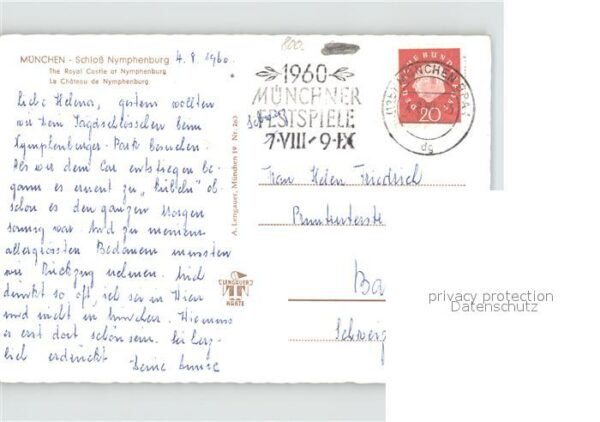 MÜNCHEN - Schloß Nymphenburg
The Royal Castle at Nymphenburg
Le Château de Nymphenburg
4.8.1960.
Liebe Helena, gestern wollten
wir dem Jagdschlösschen beim
Nymphenburger-Park besuchen.
Als wir dem Car entstiegen be-
gann es erneut zu „ “ ob-
schon es den ganzen Morgen
sonnig war. Und zu meinem
allergrössten Bedauern mussten
wir Rückzug nehmen. Mich
dünkt so oft, ich sei in Wien
und nicht in München. Wie muss
es erst dort schön sein. Sei herz-
lich erdrückt Deine
A. Lengauer, München 19 Nr. 263
LENGAUER
KARTE
800.
1960
MÜNCHNER
FESTSPIELE
7·VIII-9·IX
MÜNCHEN
dg
DEUTSCHE BUNDESPOST
20
Frau Helen Friedrich
Ba
Schweiz
privacy protection
Datenschutz